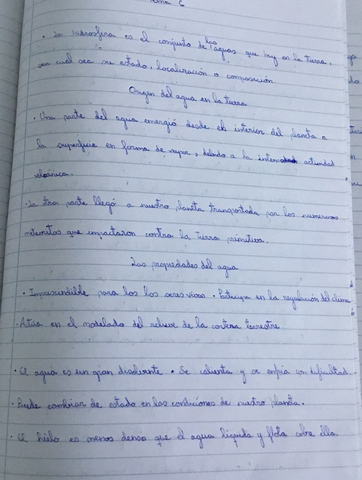 Tema 6
• La hidrosfera es el conjunto de las aguas que hay en la Tierra,
sea cual sea su estado, localización o composición
Origen del agua en la tierra
• Una parte del agua emergió desde el interior del planeta a
la superficie en forma de vapor, debido a la intensa actividad
volcánica.
• La otra parte llegó a nuestro planeta transportada por los numerosos
meteoritos que impactaron contra la Tierra primitiva.
Las propiedades del agua
• Imprescindible para los los seres vivos • Participa en la regulación del clima
• Actua en el modelado del relieve de la corteza terrestre
• El agua es un gran disolvente • Se calienta y se enfria con dificultad.
• Puede cambiar de estado en las condiciones de nuestro planeta.
• El hielo es menos denso que el agua liquida y flota sobre ella